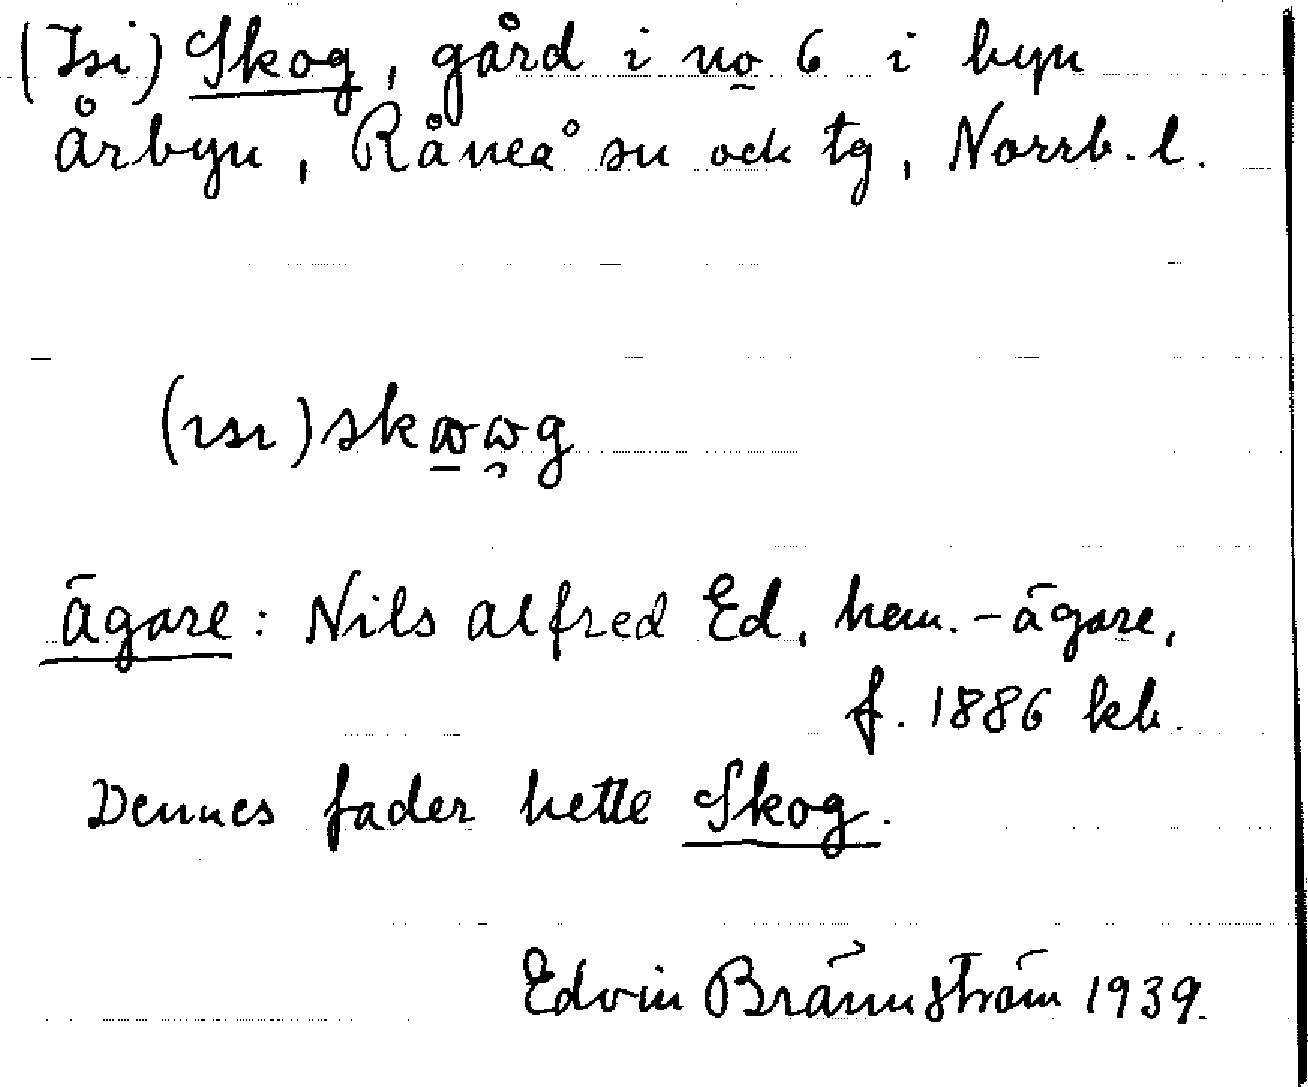 (Isi) Skog, gård i no 6 i byn
Årbyn, Råneå sn ock tg, Norrb. l.
(ısı) skωωg
Ägare: Nils Alfred Ed, hem.-ägare,
f. 1886 kb.
Dennes fader hette Skog.
Edvin Brännström 1939.